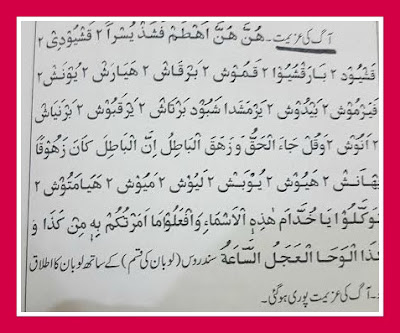 آگ کی عزیمت۔ هُنَّ هُنَّ اَهْطَمْ فَشَذْ يُسْرًا ٢ قَشْيُوْدِىْ ٢
قَشْيُوْد ٢ بَارَقْشَيُوْا ٢ قَمُوْشْ ٢ بَرْقَاشْ ٢ هَيَارَشْ ٢ يُوْنَشْ ٢
قَبَرْمُوْشْ ٢ يَرْمَشَدا شَبُوْد بَرْتَاشْ ٢ يَرْقَبُوْشْ ٢
٢ اَنُوْشْ ٢ وَقُلْ جَاءَ الْحَقُّ وَزَهَقَ الْبَاطِلُ اِنَّ الْبَاطِلَ كَانَ زَهُوْقًا
هَيُوْشْ ٢ يُوْبَشْ ٢ لَيُوْشْ ٢ مَيُوْشْ ٢ هَيَامَتُوْشْ ٢
تَوَكَّلُوْا يَا خُدَّامَ هٰذِهِ الْاَسْمَاءِ وَافْعَلُوْا مَا اَمَرْتُكُمْ بِهٖ مِنْ كَذَا وَ
كَذَا الْوَحَا الْعَجَلُ السَّاعَةُ سندروس (لوبان کی قسم) کے ساتھ لوبان کا اطلاق
۔ آگ کی عزیمت پوری ہو گئی۔